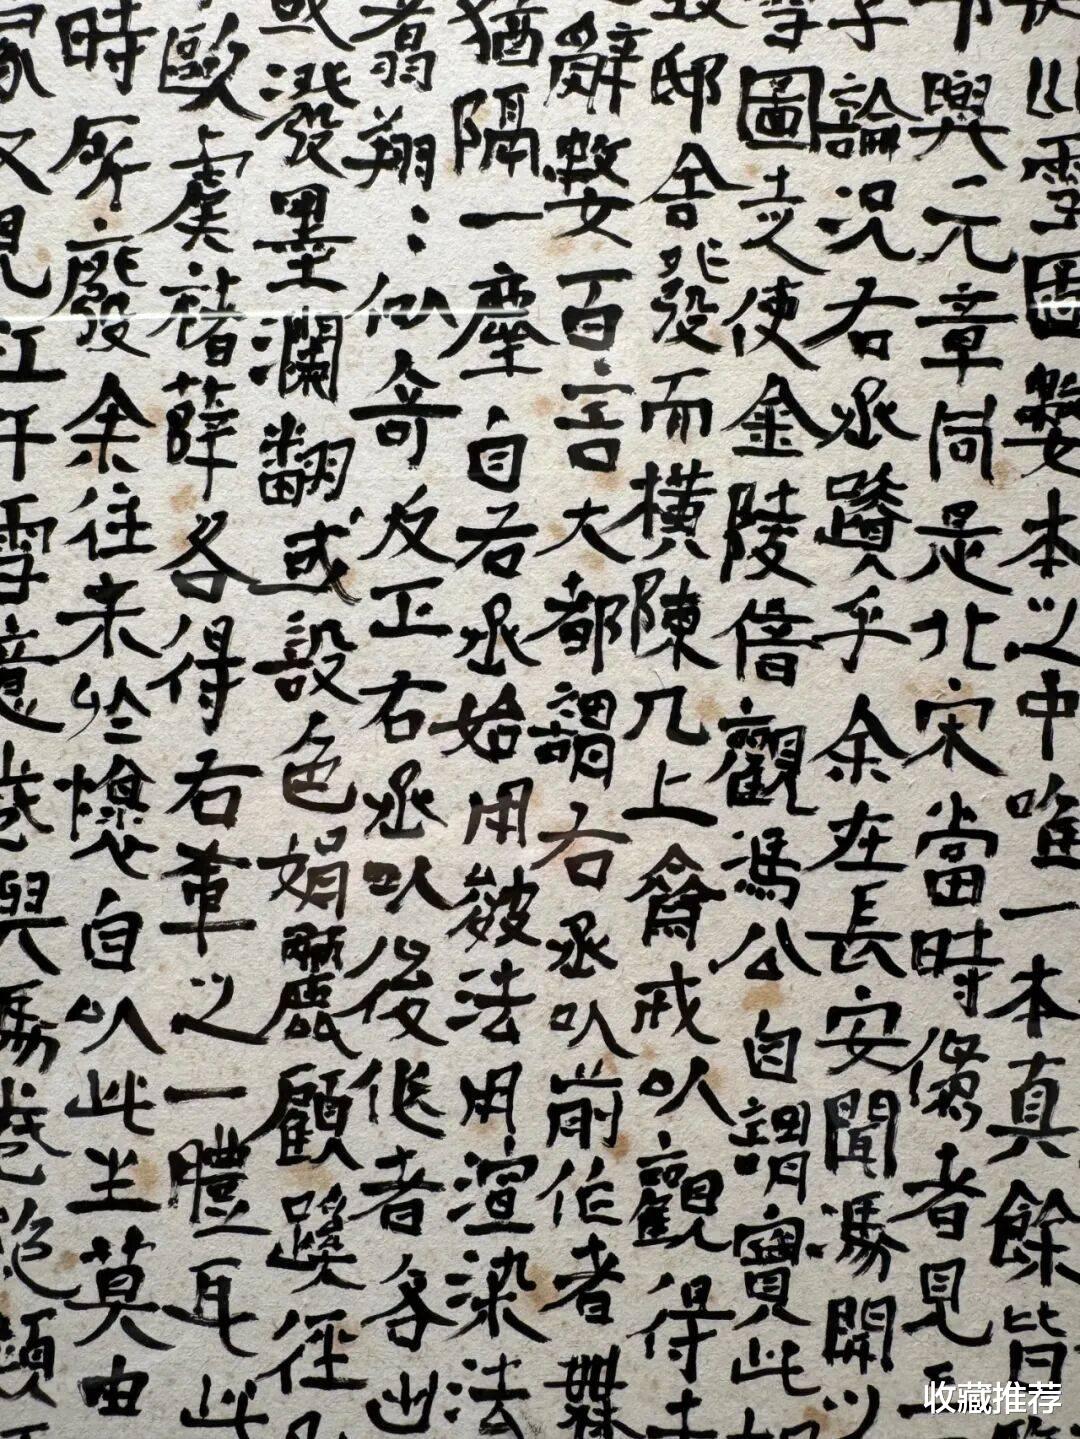 川雪圖數本之中唯一本真餘皆
與元章同是北宋當時傳者見
子論況右丞蹟乎余在長安聞馮開之
雪圖走使金陵借觀馮公自謂寶此
邸舍發而橫陳几上齋戒以觀得
辭數百言大都謂右丞以前作者無
猶隔一塵自右丞始用皴法用渲染法
者翕翔〻似奇反正右丞以後作者各出
或潑墨瀾翻或設色娟麗顧蹊徑
歐虞褚薛各得右軍之一體耳此
時所廢余往來於懷自以此生莫由
又見江干雪意
收藏推荐